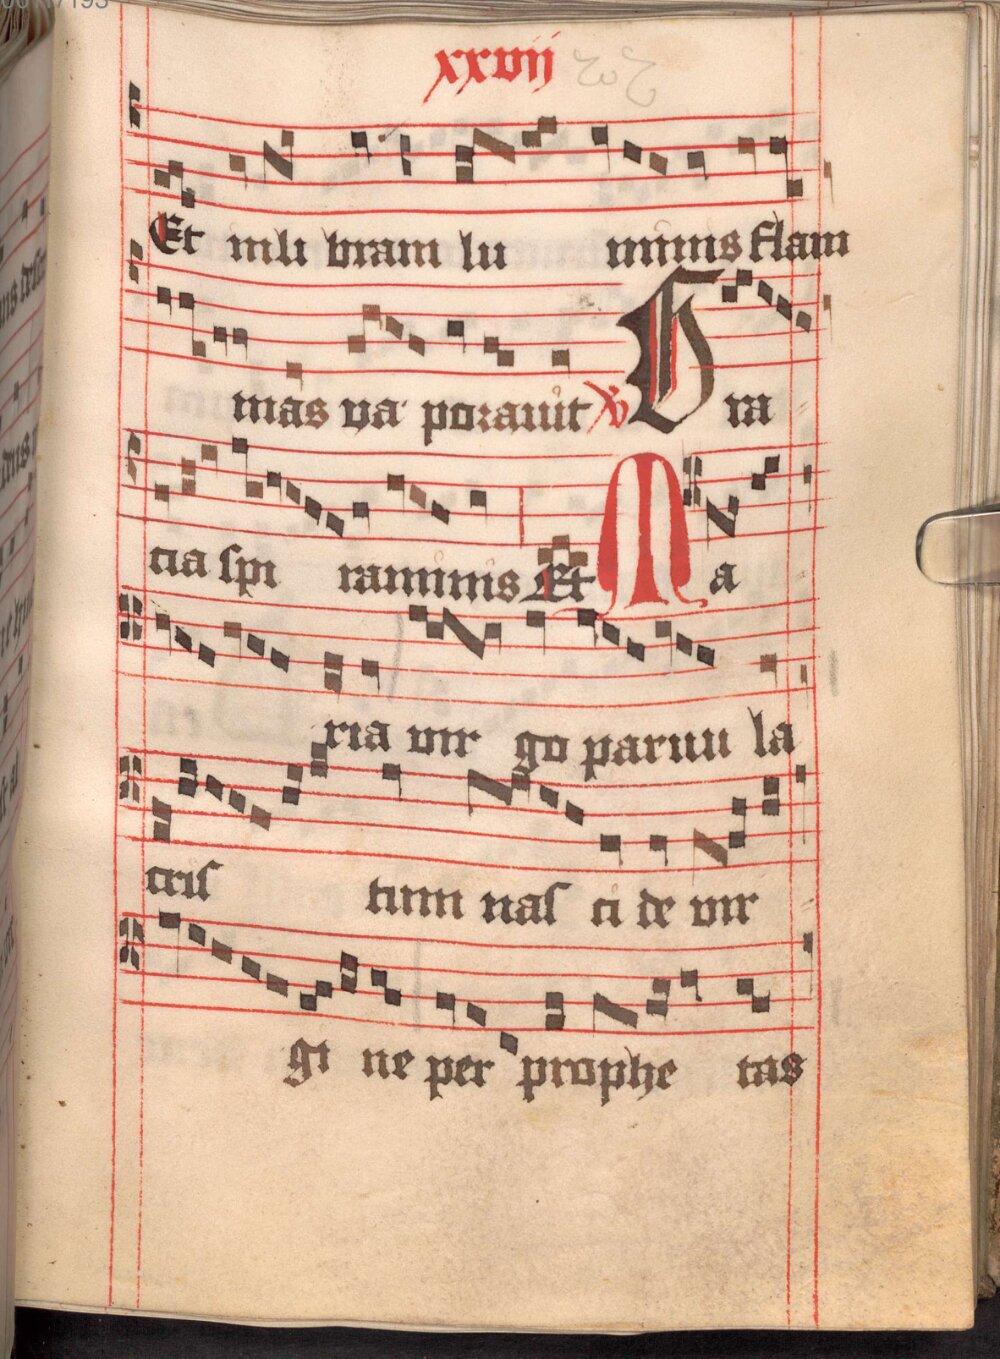 xxvij
Et mli bram lu minis flam
mas va porauit ℣ Gra
cia spi raminis Et Ma
ria vir go paruu la
cris tum nas ci de vir
gi ne per prophe tas